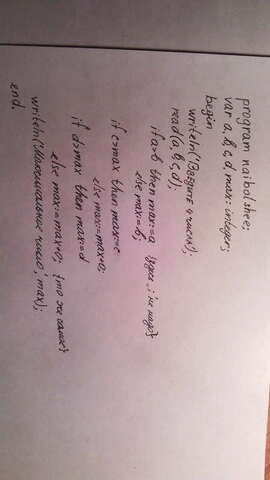 program naibolshee;
var a, b, c, d max: integer;
begin
writeln('Введите 4 числа');
read(a, b, c, d);
if a>b then max:=a {здесь ; не надо}
else max:=b;
if c>max then max:=c
else max:=max+0;
if d>max then max:=d
else max:=max+0; {то же самое}
writeln('Максимальное число', max);
end.